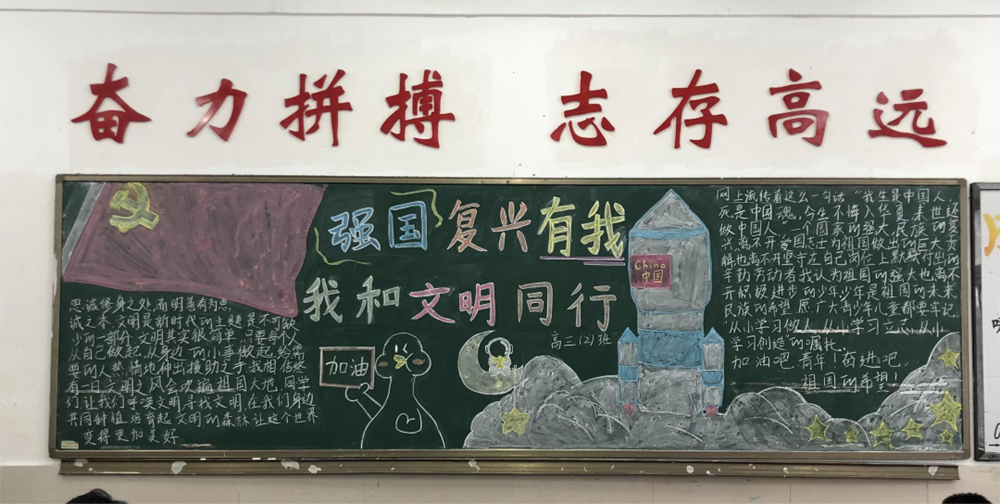 奋力拼搏 志存高远
强国复兴有我
我和文明同行
高三(2)班
加油
China
中国
思诚修身之处,有明善有为思
诚之本,文明是新时代的主题,是不可缺
少的一部分,文明其实很简单,只要每个人
从自己做起,从身边的小事做起,给需
要的人热情地伸出援助之手,我相信终
有一日文明之风会吹遍祖国大地,同学
们让我们呼唤文明,寻找文明,在我们身边
共同种植培育起文明的森林,让这个世界
变得更加美好
网上流传着这么一句话:“我生是中国人,
死是中国魂,今生不悔入华夏,来世还
做中国人。”一个国家的强大,民族的复
兴,离不开爱国志士为祖国做出的巨大贡
献,也离不开坚守在自己岗位上默默付出的
辛勤劳动者,我认为祖国的强大也离不
开积极进步的少年,少年是祖国的未来,
民族的希望,愿广大青少年儿童都要牢记
“从小学习做人,从小学习立志,从小
学习创造”的嘱托。
加油吧,青年!奋进吧,
祖国的希望!